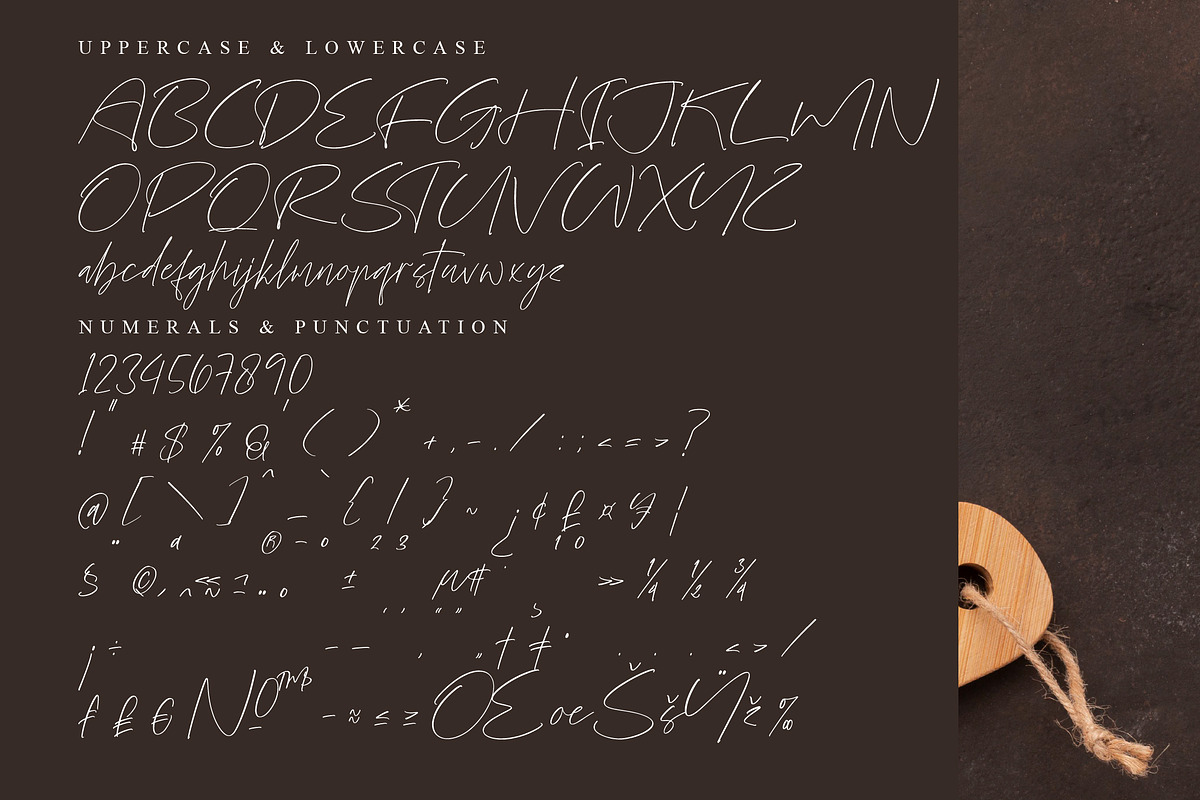 UPPERCASE & LOWERCASE
ABCDEFGHIJKLMN
OPQRSTUVWXYZ
abcdefghijklmnopqrstuvwxyz
NUMERALS & PUNCTUATION
1234567890
! " # $ % & ' ( ) * + , - . / : ; < = > ?
@ [ \ ] ^ _ ` { | } ~ ¡ ¢ £ ¤ ¥ |
§ ¨ © ª « ¬ ® ¯ ° ± 2 3 µ ¶ · ¸ 1 º » 1/4 1/2 3/4
¿ ÷ – — ‘ ’ ‚ “ ” „ † ‡ • … ‹ › ⁄
ƒ ₤ € № ™ − ≈ ≤ ≥ Œ œ Š š Ÿ ž ‰